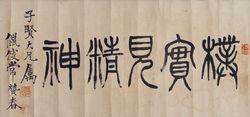 樸實見精神
子賢大兄屬
儀叟常贊春